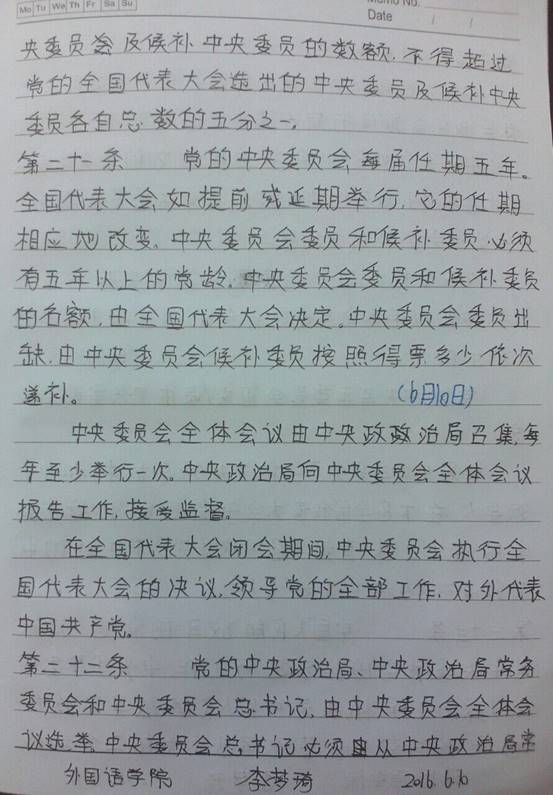 Mo Tu We Th Fr Sa Su
Memo No.
Date / /
央委员会及候补中央委员的数额,不得超过
党的全国代表大会选出的中央委员及候补中央
委员各自总数的五分之一。
第二十一条 党的中央委员会每届任期五年。
全国代表大会如提前或延期举行,它的任期
相应地改变。中央委员会委员和候补委员必须
有五年以上的党龄。中央委员会委员和候补委员
的名额,由全国代表大会决定。中央委员会委员出
缺,由中央委员会候补委员按照得票多少依次
递补。 (6月10日)
中央委员会全体会议由中央政治局召集,每
年至少举行一次。中央政治局向中央委员会全体会议
报告工作,接受监督。
在全国代表大会闭会期间,中央委员会执行全
国代表大会的决议,领导党的全部工作,对外代表
中国共产党。
第二十二条 党的中央政治局、中央政治局常务
委员会和中央委员会总书记,由中央委员会全体会
议选举。中央委员会总书记必须从中央政治局常
外国语学院 李梦琦 2016.6.10